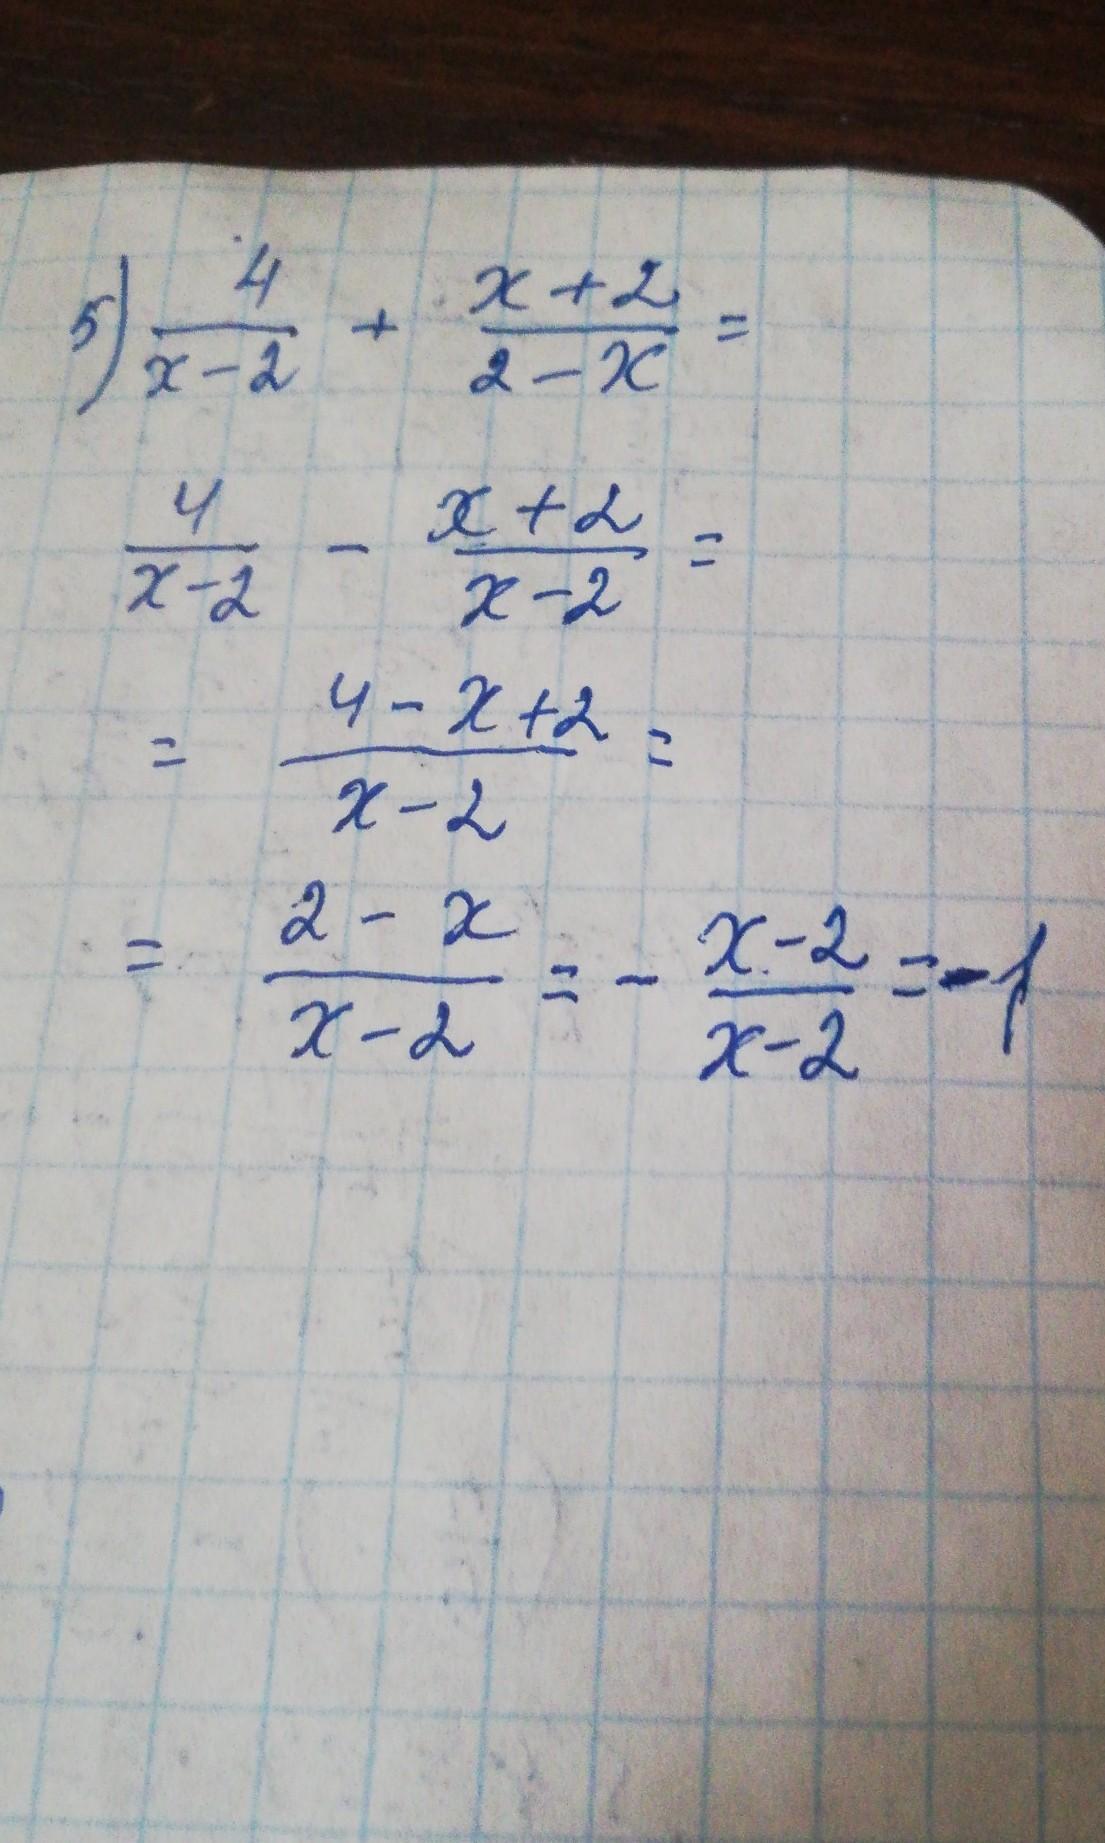 5) 4/(x-2) + (x+2)/(2-x) =
4/(x-2) - (x+2)/(x-2) =
= (4-x+2)/(x-2) =
= (2-x)/(x-2) = - (x-2)/(x-2) = -1